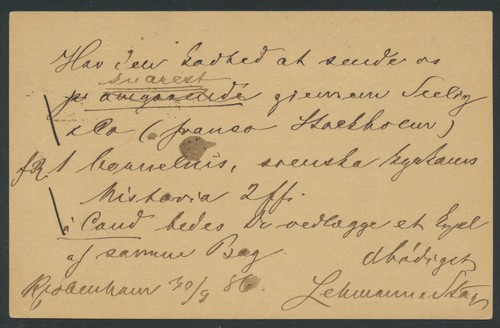 Hav den Godhed at sende os
snarest
pr omgaaende gjennem Seelig
& Co (franco Stockholm)
1 Cornelius, svenska kyrkans
historia 2 ff.
à Cond bedes De vedlægge et Expl
af samme Bog.
Ærbødigst
Kjøbenhavn 30/9 86
Lehmann & Stage